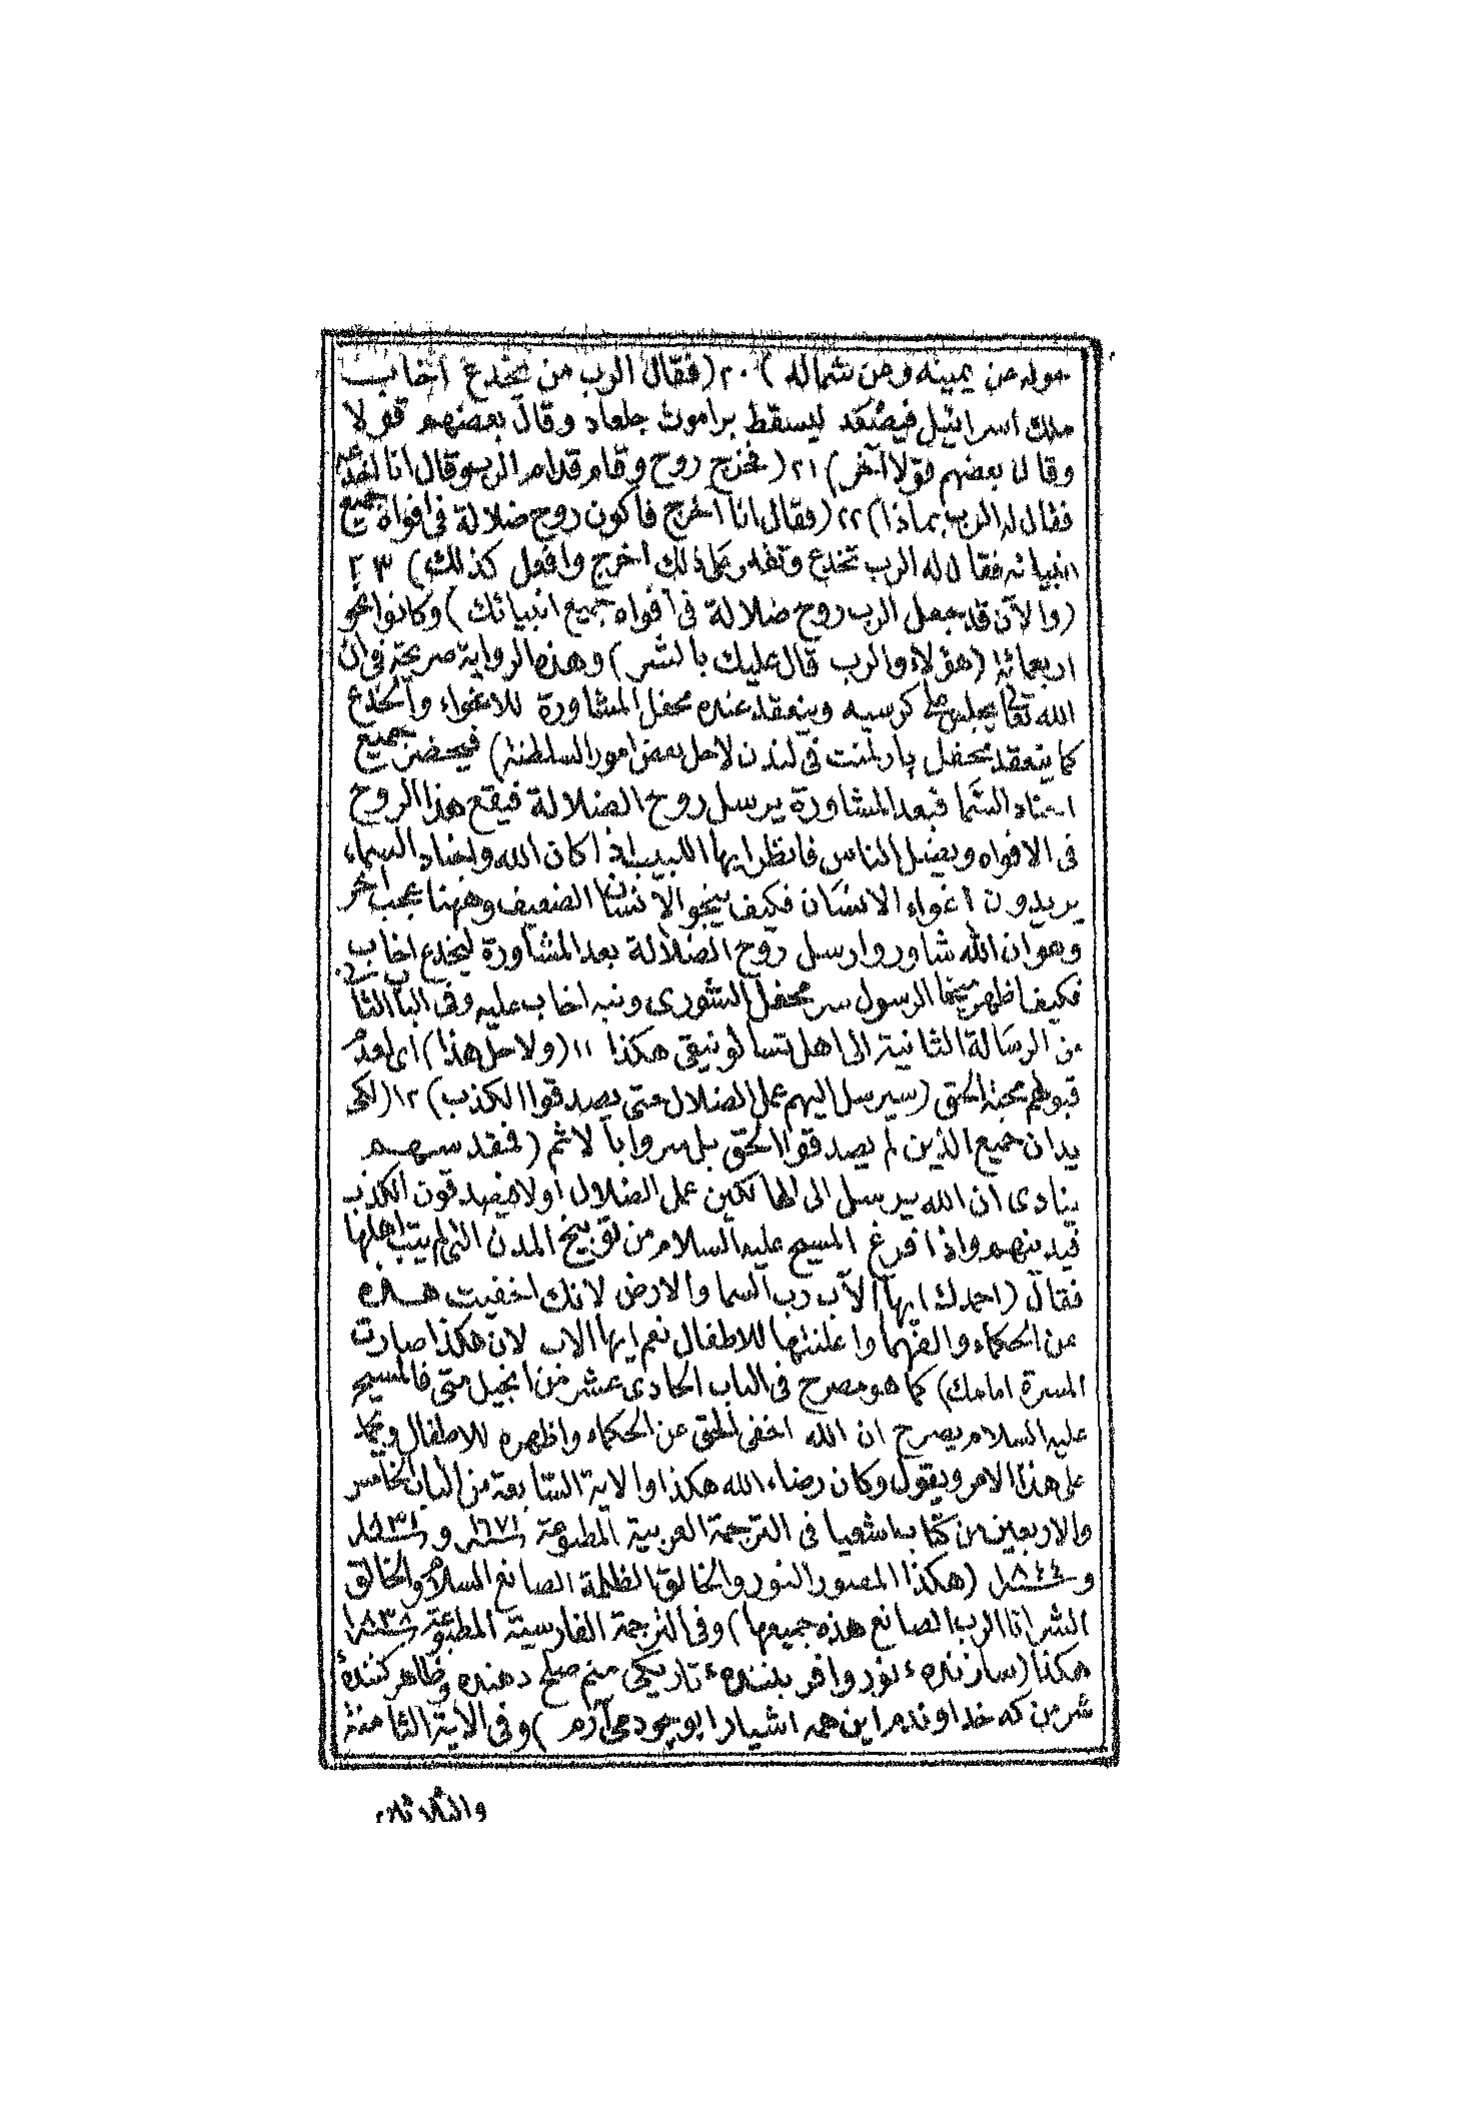 حوله من يمينه ومن شماله) ٢٠ (فقال الرب من يخدع اخاب
ملك اسرائيل فيصعد ليسقط براموث جلعاد وقال بعضهم قولا
وقال بعضهم قولا آخر) ٢١ (فخرج روح وقام قدام الرب وقال انا اخدعه
فقال له الرب بماذا) ٢٢ (فقال انا اخرج فأكون روح ضلالة فى افواه جميع
انبيائه فقال له الرب تخدع وتقدر على ذلك اخرج وافعل كذلك) ٢٣
(والآن قد جعل الرب روح ضلالة فى أفواه جميع انبيائك) وكانوا نحو
اربعمائة (هؤلاء والرب قال عليك بالشر) وهذه الرواية صريحة فى ان
الله تعالى يجلس على كرسيه وينعقد عنده محفل المشاورة للاغواء والخدع
كما ينعقد محفل پارلمنت فى لندن لاجل بعض امور السلطنة) فيحضر جميع
اجناد السما فبعد المشاورة يرسل روح الضلالة فيقع هذا الروح
فى الافواه ويضل الناس فانظر ايها اللبيب اذا كان الله واجناد السماء
يريدون اغواء الانسان فكيف ينجو الانسان الضعيف وههنا عجب اخر
وهو ان الله شاور وارسل روح الضلالة بعد المشاورة ليخدع اخاب
فكيف اظهر ميخا الرسول سر محفل الشورى ونبه اخاب عليه وفى الباب الثانى
من الرسالة الثانية الى اهل تسالونيقى هكذا ١١ (ولاجل هذا) اى لعدم
قبولهم محبة الحق (سيرسل اليهم عمل الضلال حتى يصدقوا الكذب) ١٢ (لكى
يدان جميع الذين لم يصدقوا الحق بل سروا بالاثم (فمقدسهم
ينادى ان الله يرسل الى الهالكين عمل الضلال أولا فيصدقون الكذب
فيدينهم واذا فرغ المسيح عليه السلام من توبيخ المدن التى لم يتب اهلها
فقال (احمدك ايها الآب رب السما والارض لانك اخفيت هذه
عن الحكماء والفهما واعلنتها للاطفال نعم ايها الاب لان هكذا صارت
المسرة امامك) كما هو مصرح فى الباب الحادى عشر من انجيل متى فالمسيح
عليه السلام يصرح ان الله اخفى الحق عن الحكماء واظهره للاطفال ويحمد
على هذا الامر ويقول وكان رضاء الله هكذا والاية السابعة من الباب الخامس
والاربعين من كتاب اشعيا فى الترجمة العربية المطبوعة سنة ١٦٧١ وسنة ١٨٣١
وسنة ١٨٤٤ (هكذا المصور النور والخالق الظلمة الصانع السلام والخالق
الشر انا الرب الصانع هذه جميعها) وفى الترجمة الفارسية المطبوعة سنة ١٨٣٨
هكذا (سازندهء نور وافرينندهء تاريكى منم صلح دهنده وظاهر كنندهٔ
شر من كه خداوندم اين همه اشيا را بوجود مى آرم) وفى الاية الثامنة
والثلاثين